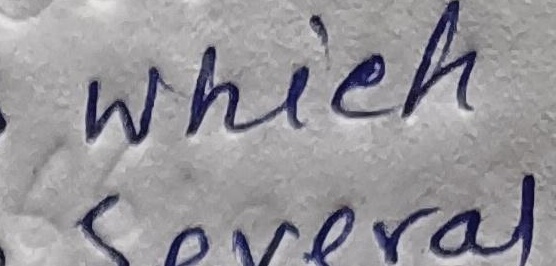 which
several